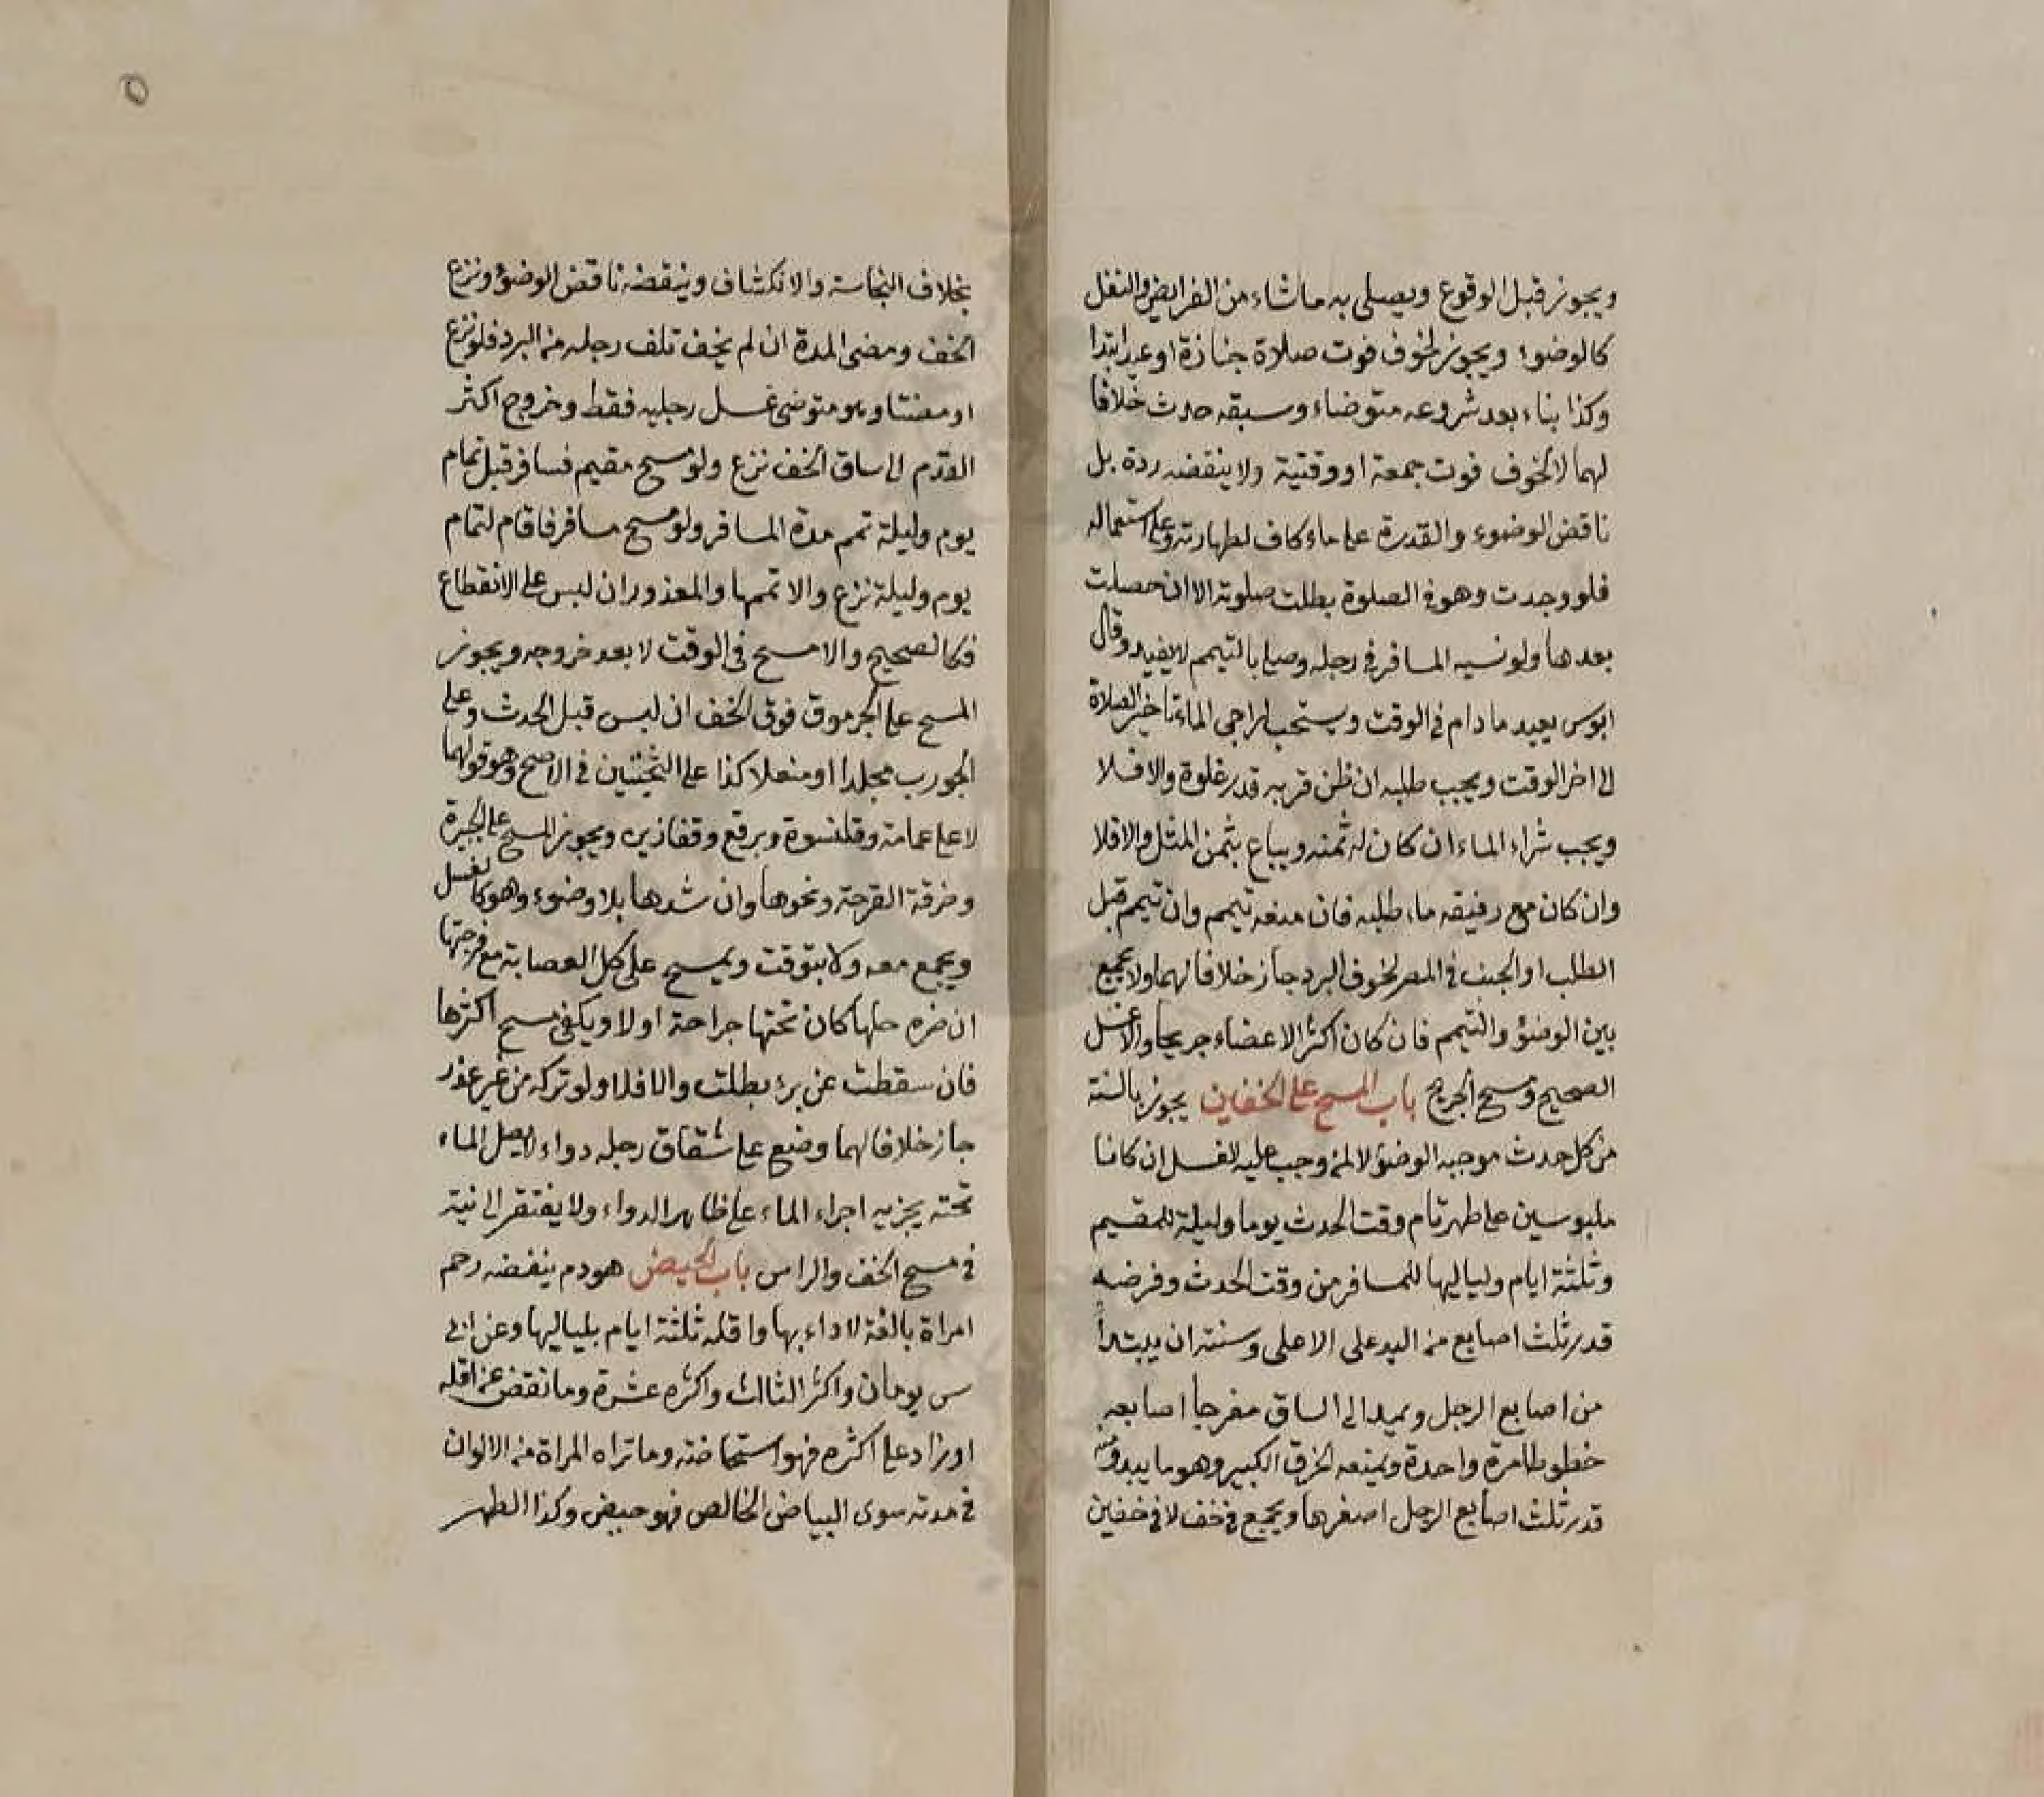 ويجوز قبل الوقوع ويصلى به ماشاء من الفرايض والنفل
كالوضوء ويجوز لخوف فوت صلاة جنازة او عيد ابتدا
وكذا بناء بعد شروعه متوضاء وسبقه حدث خلافا
لهما لا لخوف فوت جمعة او وقتية ولا ينقضه ردة بل
ناقض الوضوء والقدرة على ماء كاف لطهارته وعلى استعماله
فلو وجدت وهو في الصلوة بطلت صلوته الا ان حصلت
بعدها ولو نسيه المسافر في رحله وصلى بالتيمم لا يعيد وقال
ابو س يعيد ما دام في الوقت ويستحب لراجي الماء تاخير الصلاة
الى اخر الوقت ويجب طلبه ان ظن قربه قدر غلوة والا فلا
ويجب شراء الماء ان كان له ثمنه ويباع بثمن المثل والا فلا
وان كان مع رفيقه ماء طلبه فان منعه تيمم وان تيمم قبل
الطلب او الجنب في المصر لخوف البرد جاز خلافا لهما ولا يجمع
بين الوضؤ والتيمم فان كان اكثر الاعضاء جريحا والا غسل
الصحيح ومسح الجريح باب المسح على الخفين يجوز بالسنة
من كل حدث موجبه الوضؤ لا لمن وجب عليه الغسل ان كانا
ملبوسين على طهر تام وقت الحدث يوما وليلة للمقيم
وثلثة ايام ولياليها للمسافر من وقت الحدث وفرضه
قدر ثلث اصابع من اليد على الاعلى وسنته ان يبتدأ
من اصابع الرجل ويمد الى الساق مفرجا اصابعه
خطوطا مرة واحدة ويمنعه الخرق الكبير وهو ما يبدو منه
قدر ثلث اصابع الرجل اصغرها ويجمع في خف لا في خفين
٥
بخلاف النجاسة والانكشاف وينقضه ناقض الوضوء ونزع
الخف ومضى المدة ان لم يخف تلف رجله من البرد فلو نزع
او مضتا وهو متوضى غسل رجليه فقط وخروج اكثر
القدم الى ساق الخف نزع ولو مسح مقيم فسافر قبل تمام
يوم وليلة تمم مدة المسافر ولو مسح مسافر فاقام لتمام
يوم وليلة نزع والا تممها والمعذور ان لبس على الانقطاع
فكالصحيح والا مسح في الوقت لا بعد خروجه ويجوز
المسح على الجرموق فوق الخف ان لبس قبل الحدث وعلى
الجورب مجلدا او منعلا كذا على الثخينين في الاصح وهو قولهما
لا على عمامة وقلنسوة وبرقع وقفازين ويجوز المسح على الجبيرة
وخرقة القرحة ونحوها وان شدها بلا وضوء وهو كالغسل
ويجمع معه ولا يتوقت ويمسح على كل العصابة مع فرجتها
ان ضره حلها كان تحتها جراحة اولا ويكفى مسح اكثرها
فان سقطت عن برء بطلت والا فلا ولو تركه من غير عذر
جاز خلافا لهما وضع على شقاق رجله دواء لا يصل الماء
تحته يجزيه اجراء الماء على ظاهر الدواء ولا يفتقر الى نية
في مسح الخف والراس باب الحيض هو دم ينفضه رحم
امراة بالغة لا داء بها واقله ثلثة ايام بلياليها وعن ابى
س يومان واكثر الثالث واكثره عشرة وما نقص عن اقله
او زاد على اكثره فهو استحاضة وما تراه المراة من الالوان
في مدته سوى البياض الخالص فهو حيض وكذا الطهر